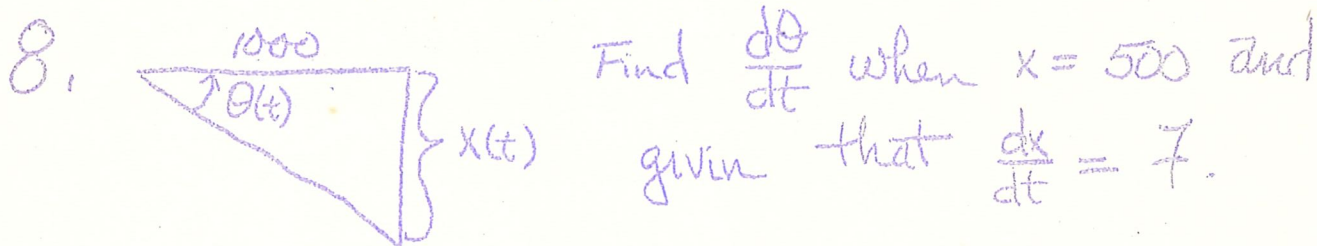 8.
1000
θ(t)
x(t)
Find dθ/dt when x = 500 and
givin that dx/dt = 7.